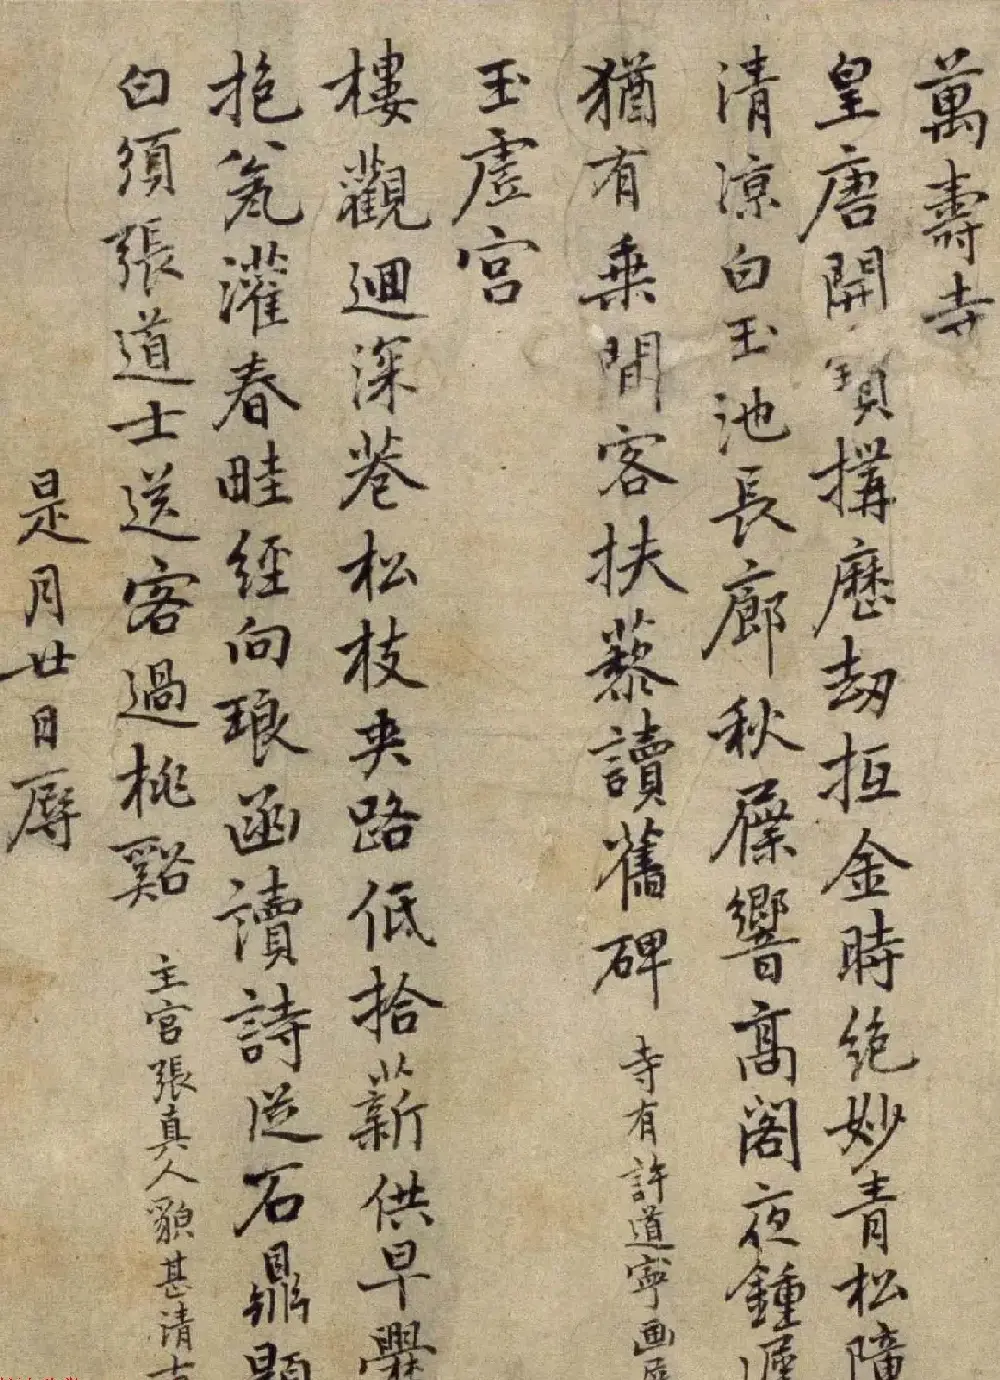 萬壽寺
皇唐開寶構歷劫抵金時絕妙青松障
清涼白玉池長廊秋屧響高閣夜鍾遲
猶有乘閒客扶藜讀舊碑 寺有許道寧画屏
玉虛宮
樓觀迴深巷松枝夾路低拾薪供早爨
抱瓮灌春畦經向琅函讀詩從石鼎題
白須張道士送客過桃谿 主宮張真人貌甚清古
是月廿日辱